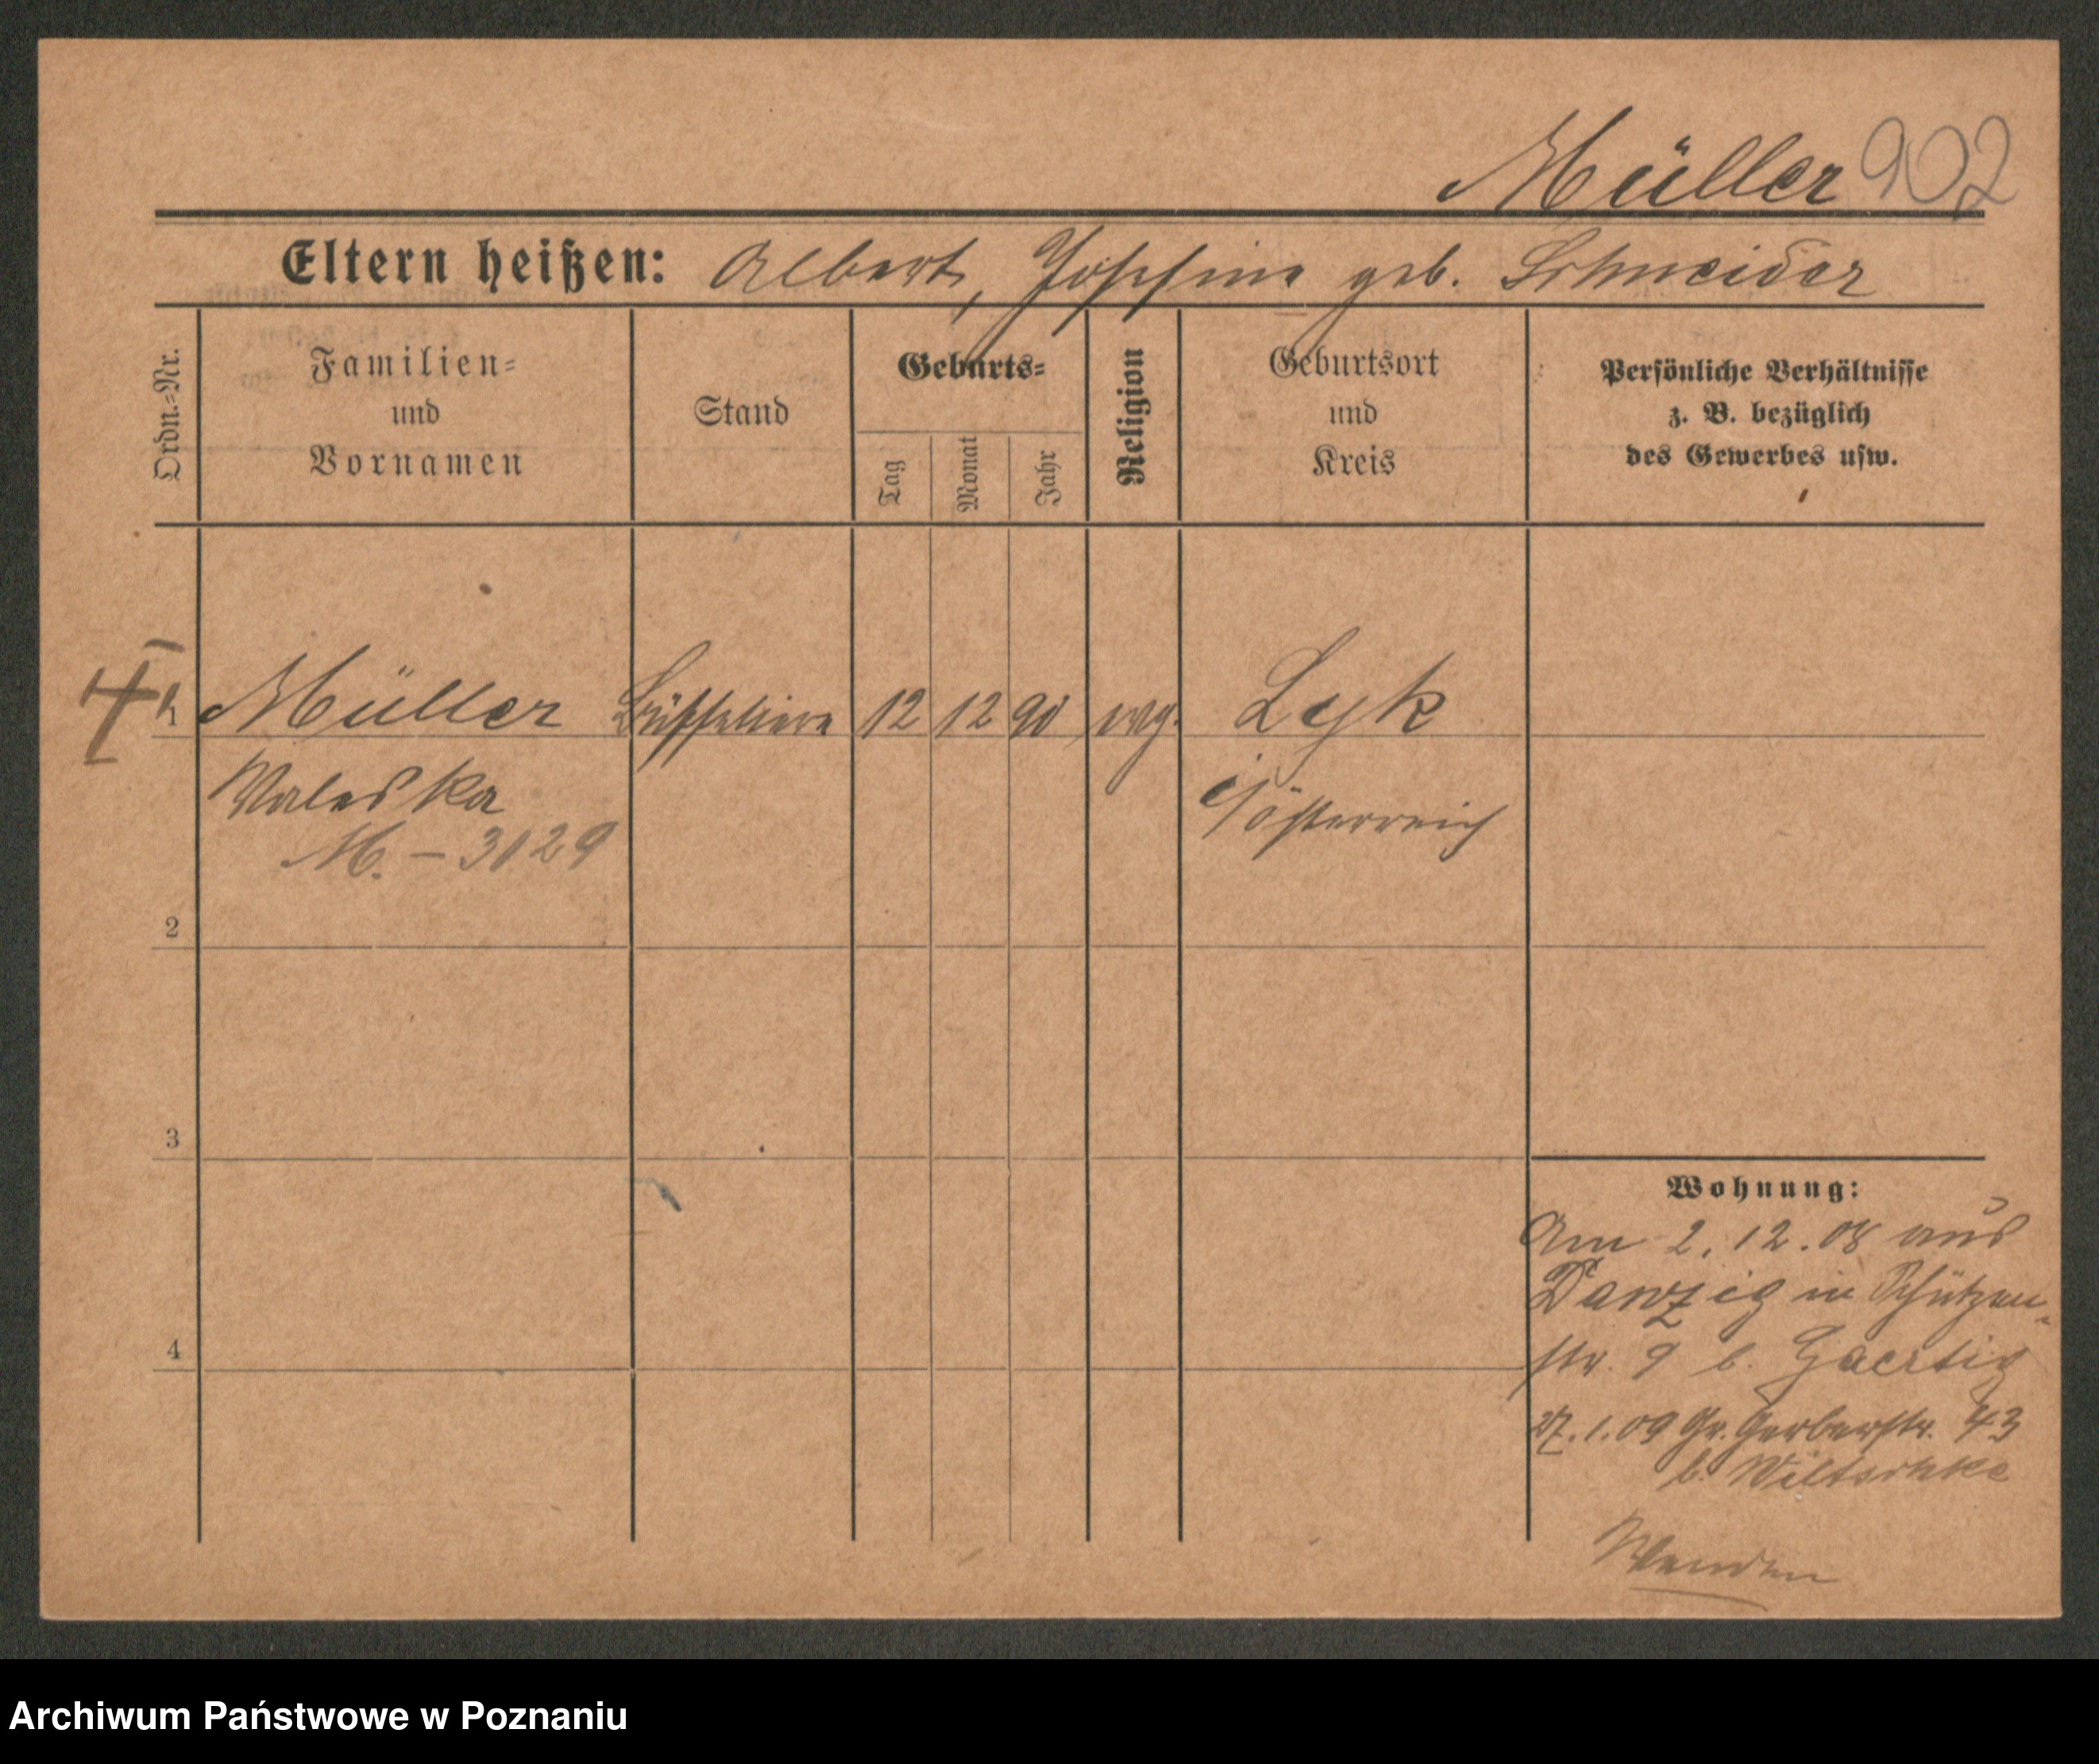 Müller 902
Eltern heißen: Albert, Josefine geb. Schneider
Ordn.-Nr.
Familien-
und
Vornamen
Stand
Geburts-
Tag
Monat
Jahr
Religion
Geburtsort
und
Kreis
Persönliche Verhältnisse
z. B. bezüglich
des Gewerbes usw.
1 Müller Büffetiere 12 12 90 evg. Lyk
Valeska i/österreich
M. - 3129
2
3
4
Wohnung:
Am 2.12.08 aus
Danzig in Schützen-
str. 9 b. Gaertig
27.1.09 Gr. Gerberstr. 43
b. Wiltschke
Wenden
Archiwum Państwowe w Poznaniu